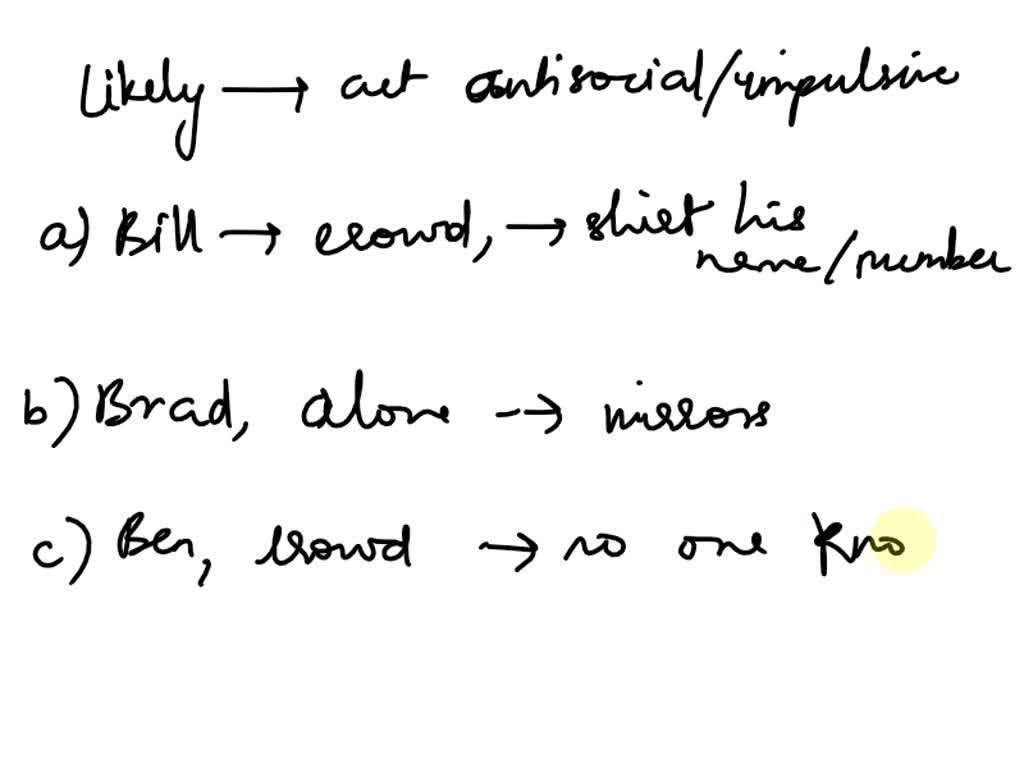 Likely → act antisocial/impulsive
a) Bill → crowd, → shirt his
name/number
b) Brad, alone → mirrors
c) Ben, crowd → no one kno